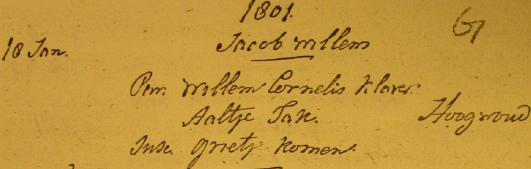 1801.
61
18 Jan. Jacob Willem
Par. Willem Cornelis Klaver.
Aaltje Tak. Hoogwoud
Susc. Grietje Komen.